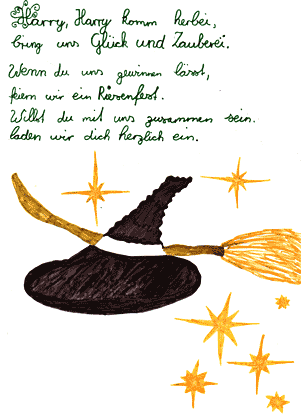 Harry, Harry komm herbei,
bring uns Glück und Zauberei.
Wenn du uns gewinnen lässt,
feiern wir ein Riesenfest.
Willst du mit uns zusammen sein.
laden wir dich herzlich ein.